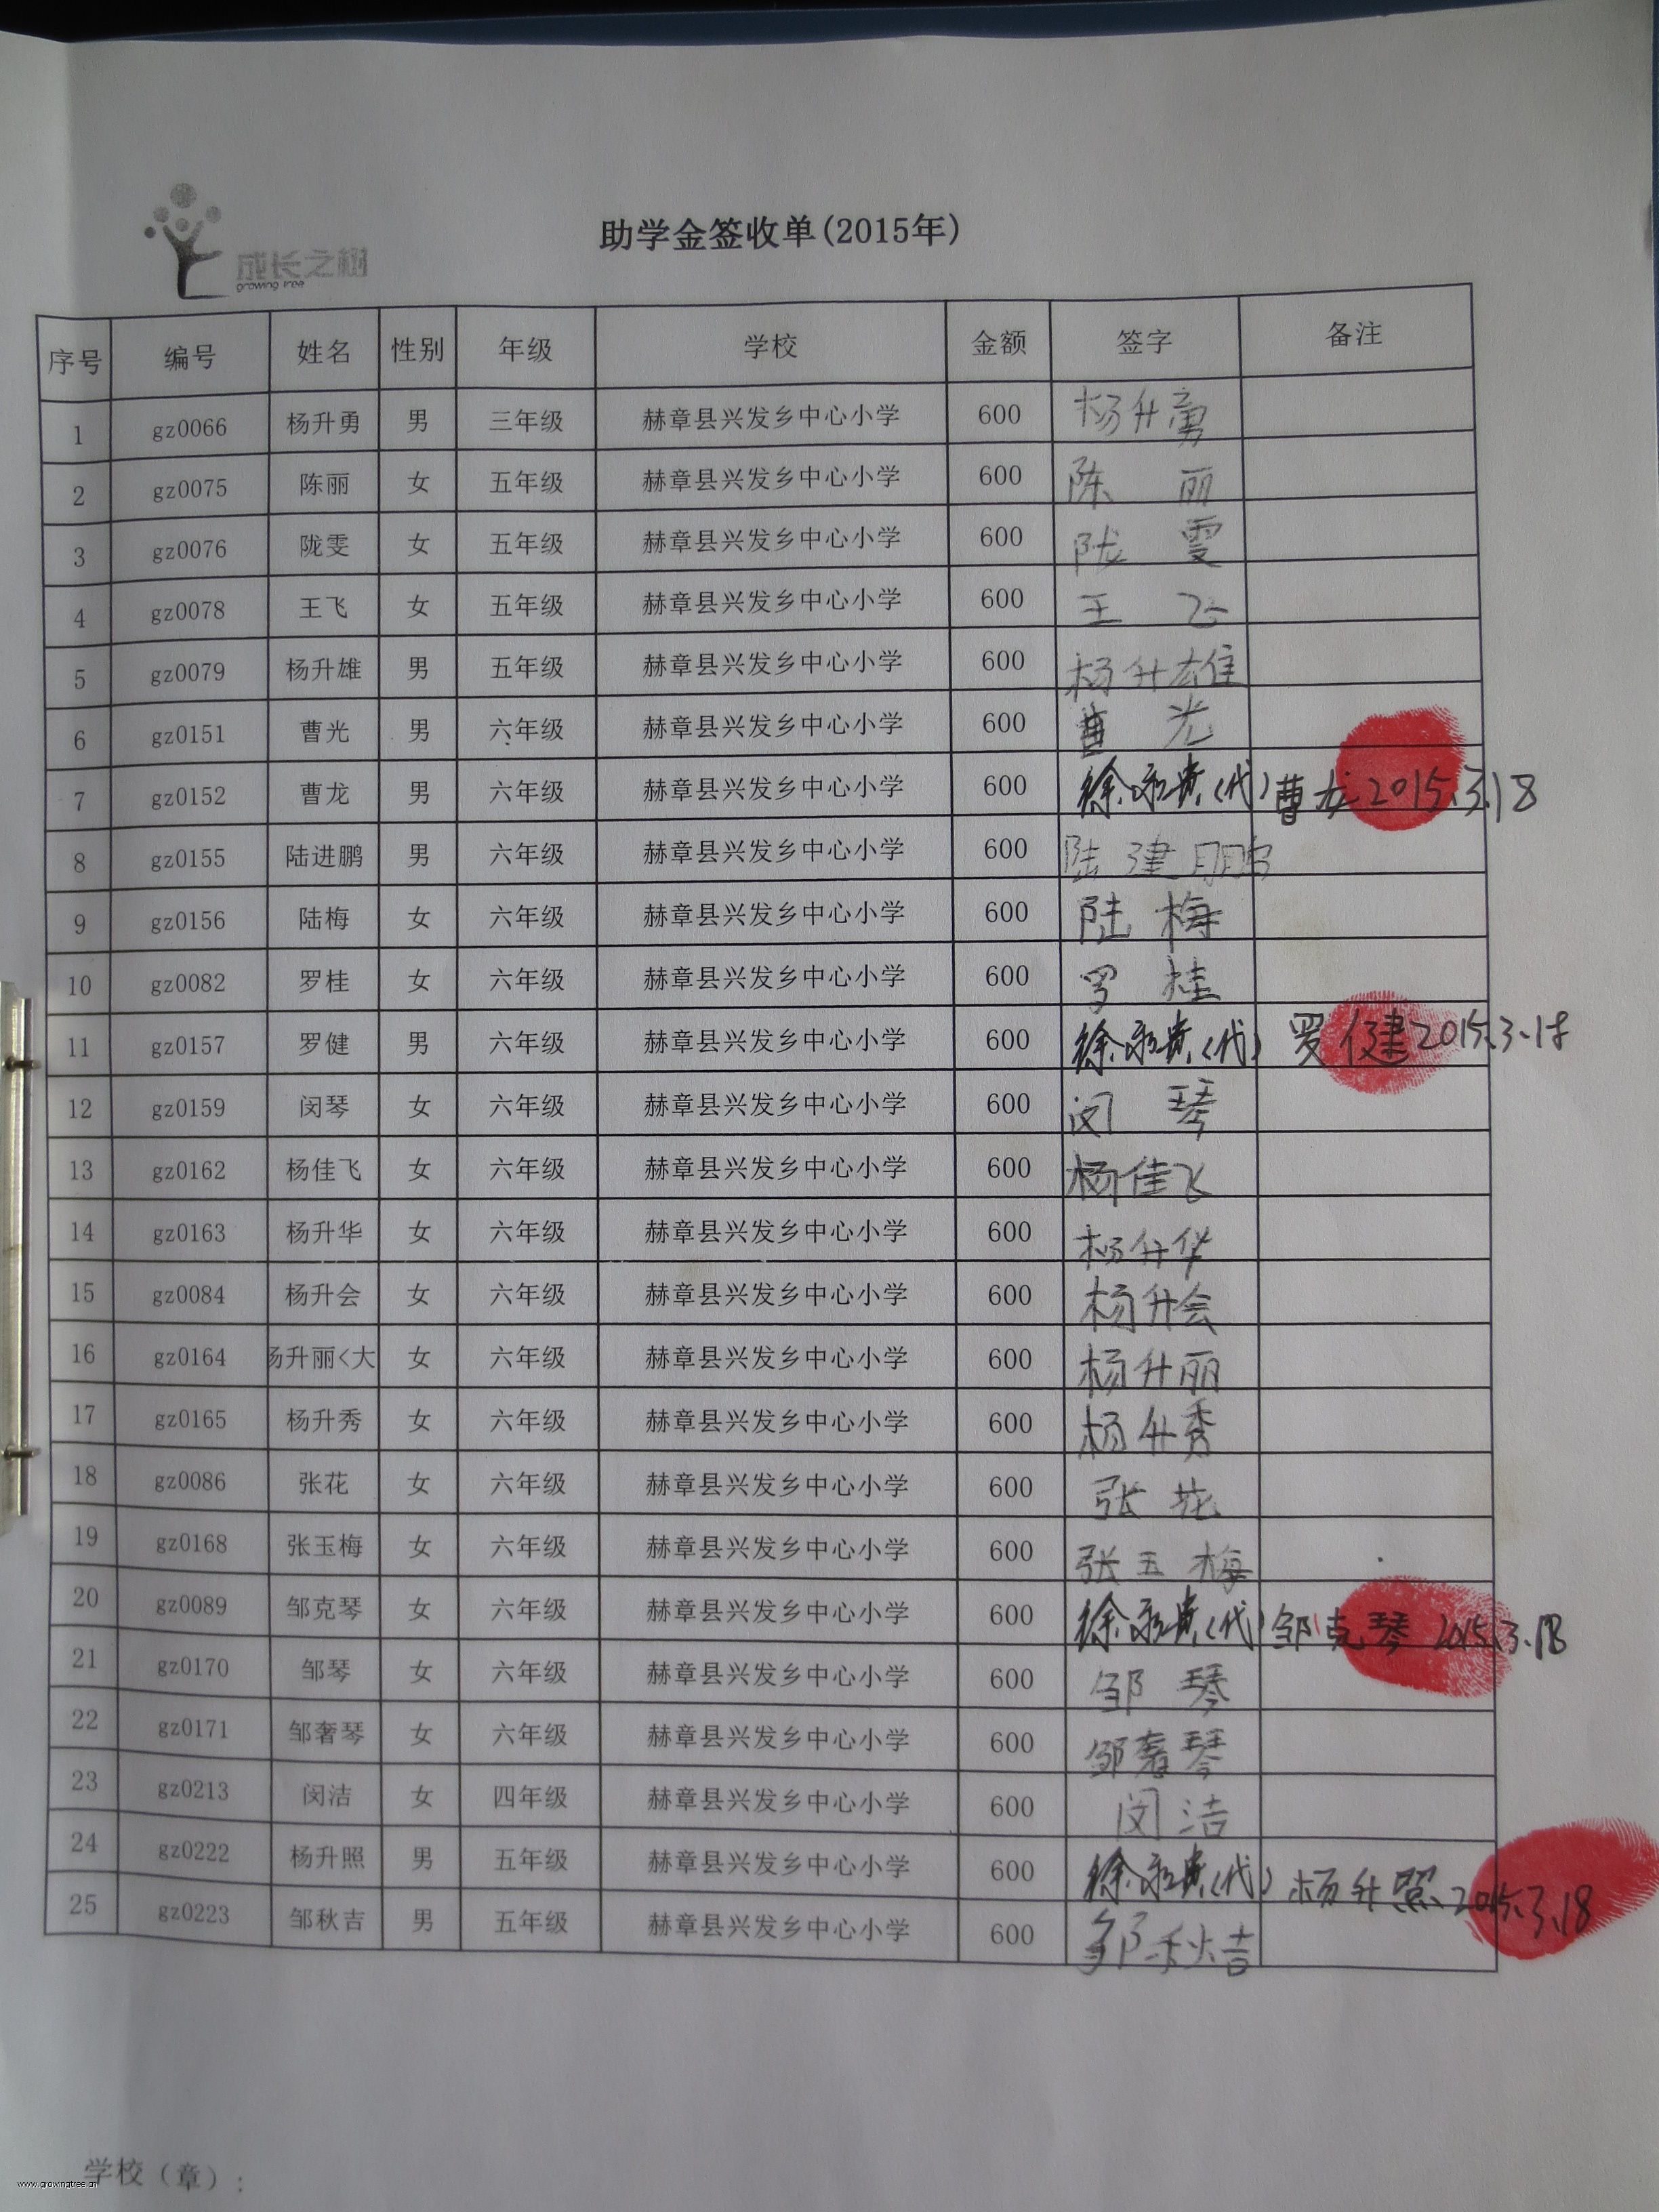 成长之树
growing tree
助学金签收单(2015年)
序号 编号 姓名 性别 年级 学校 金额 签字 备注
1 gz0066 杨升勇 男 三年级 赫章县兴发乡中心小学 600 杨升勇
2 gz0075 陈丽 女 五年级 赫章县兴发乡中心小学 600 陈丽
3 gz0076 陇雯 女 五年级 赫章县兴发乡中心小学 600 陇雯
4 gz0078 王飞 女 五年级 赫章县兴发乡中心小学 600 王飞
5 gz0079 杨升雄 男 五年级 赫章县兴发乡中心小学 600 杨升雄
6 gz0151 曹光 男 六年级 赫章县兴发乡中心小学 600 曹光
7 gz0152 曹龙 男 六年级 赫章县兴发乡中心小学 600 徐永贵(代) 曹龙 2015.3.18
8 gz0155 陆进鹏 男 六年级 赫章县兴发乡中心小学 600 陆建鹏
9 gz0156 陆梅 女 六年级 赫章县兴发乡中心小学 600 陆梅
10 gz0082 罗桂 女 六年级 赫章县兴发乡中心小学 600 罗桂
11 gz0157 罗健 男 六年级 赫章县兴发乡中心小学 600 徐永贵(代) 罗健 2015.3.18
12 gz0159 闵琴 女 六年级 赫章县兴发乡中心小学 600 闵琴
13 gz0162 杨佳飞 女 六年级 赫章县兴发乡中心小学 600 杨佳飞
14 gz0163 杨升华 女 六年级 赫章县兴发乡中心小学 600 杨升华
15 gz0084 杨升会 女 六年级 赫章县兴发乡中心小学 600 杨升会
16 gz0164 杨升丽<大 女 六年级 赫章县兴发乡中心小学 600 杨升丽
17 gz0165 杨升秀 女 六年级 赫章县兴发乡中心小学 600 杨升秀
18 gz0086 张花 女 六年级 赫章县兴发乡中心小学 600 张花
19 gz0168 张玉梅 女 六年级 赫章县兴发乡中心小学 600 张玉梅
20 gz0089 邹克琴 女 六年级 赫章县兴发乡中心小学 600 徐永贵(代) 邹克琴 2015.3.18
21 gz0170 邹琴 女 六年级 赫章县兴发乡中心小学 600 邹琴
22 gz0171 邹奢琴 女 六年级 赫章县兴发乡中心小学 600 邹奢琴
23 gz0213 闵洁 女 四年级 赫章县兴发乡中心小学 600 闵洁
24 gz0222 杨升照 男 五年级 赫章县兴发乡中心小学 600 徐永贵(代) 杨升照 2015.3.18
25 gz0223 邹秋吉 男 五年级 赫章县兴发乡中心小学 600 邹秋吉
学校（章）:
www.growingtree.cn